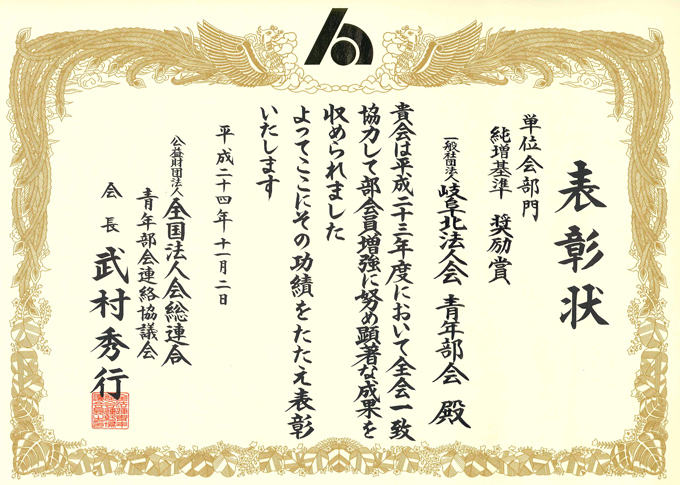 表彰状
単位会部門
純増基準 奨励賞
一般社団法人 岐阜北法人会 青年部会 殿
貴会は平成二十三年度において全会一致
協力して部会員増強に努め顕著な成果を
収められました
よってここにその功績をたたえ表彰
いたします
平成二十四年十一月二日
公益財団法人 全国法人会総連合
青年部会連絡協議会
会長 武村秀行